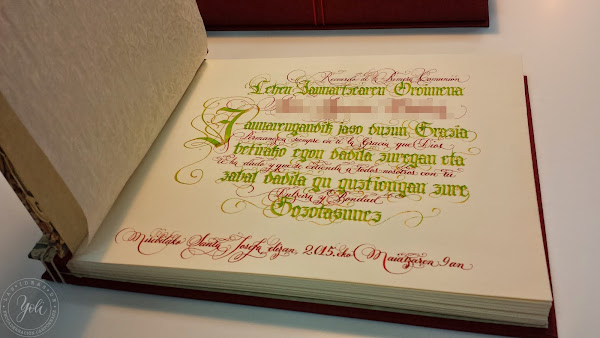 Recuerdo de la Primera Comunión
Lehen Jaunartzearen Oroimena
Jaunarengandik jaso duzun Grazia
Permanezca siempre en ti la Gracia que Dios
betirako egon dadila zuregan eta
te ha dado y que se extienda a todos nosotros con tu
zabal dadila gu guztiongan zure
Dulzura y Bondad
Gozotasunez
Miribillako Santa Josefa elizan, 2015.eko Maiatzaren 9an
Yoli